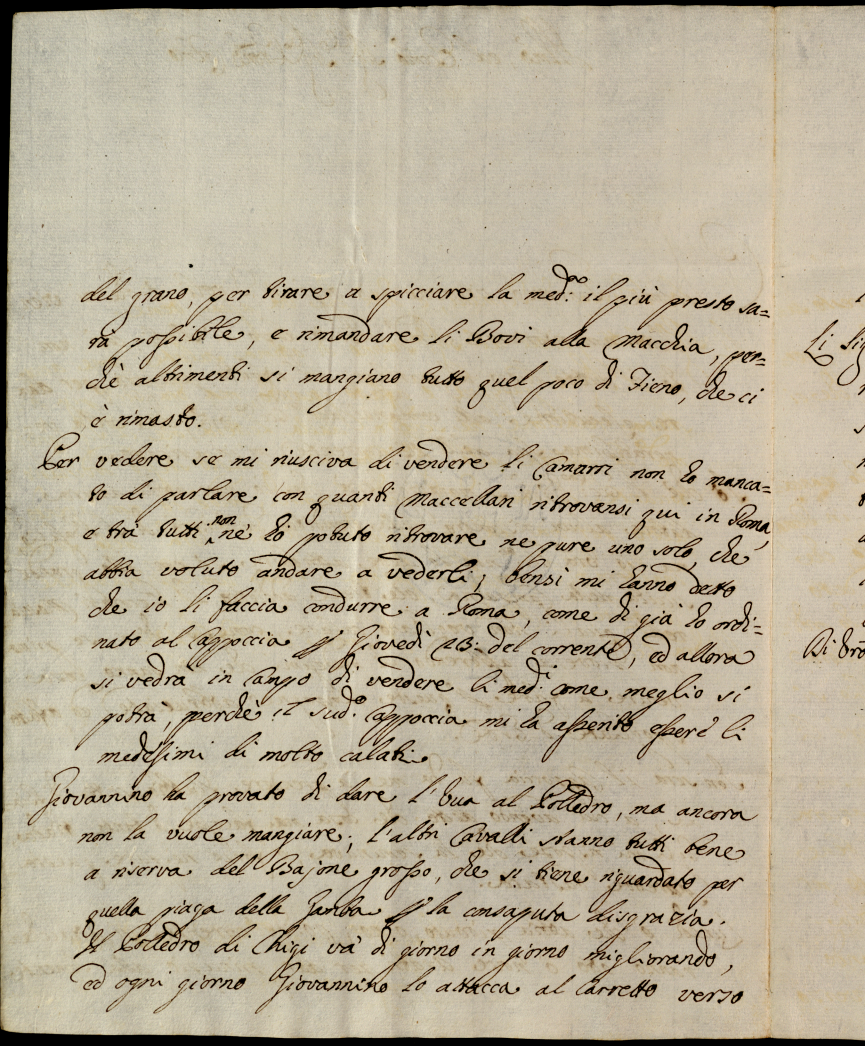 del grano, per tirare a spicciare la med:ᵐᵒ il più presto sa=
rà possibile, e rimandare li Bovi alla Macchia, per=
chè altrimenti si mangiano tutto quel poco di Fieno, che ci
è rimasto.
Per vedere se mi riusciva di vendere li Camarri non hò manca=
to di parlare con quanti Maccellari ritrovansi qui in Roma,
e trà tutti non nè hò potuto ritrovare ne pure uno solo, che
abbia voluto andare a vederli; bensì mi hanno detto
che io li faccia condurre a Roma, come di già hò ordi=
nato al Cappoccia p Giovedì 23: del corrente, ed allora
si vedrà in Campo di vendere li med:ⁱ come meglio si
potrà, perchè il sud:ᵒ Cappoccia mi hà asserito essere li
medesimi di molto calati.
Giovannino ha provato di dare l'Eua al Polledro, ma ancora
non la vuole mangiare; l'altri Cavalli stanno tutti bene
a riserva del Bajone grosso, che si tiene riguardato per
quella piaga della Gamba p la consaputa disgrazia.
Il Polledro di Chigi và di giorno in giorno migliorando,
ed ogni giorno Giovannino lo attacca al Carretto verso
Li Sig